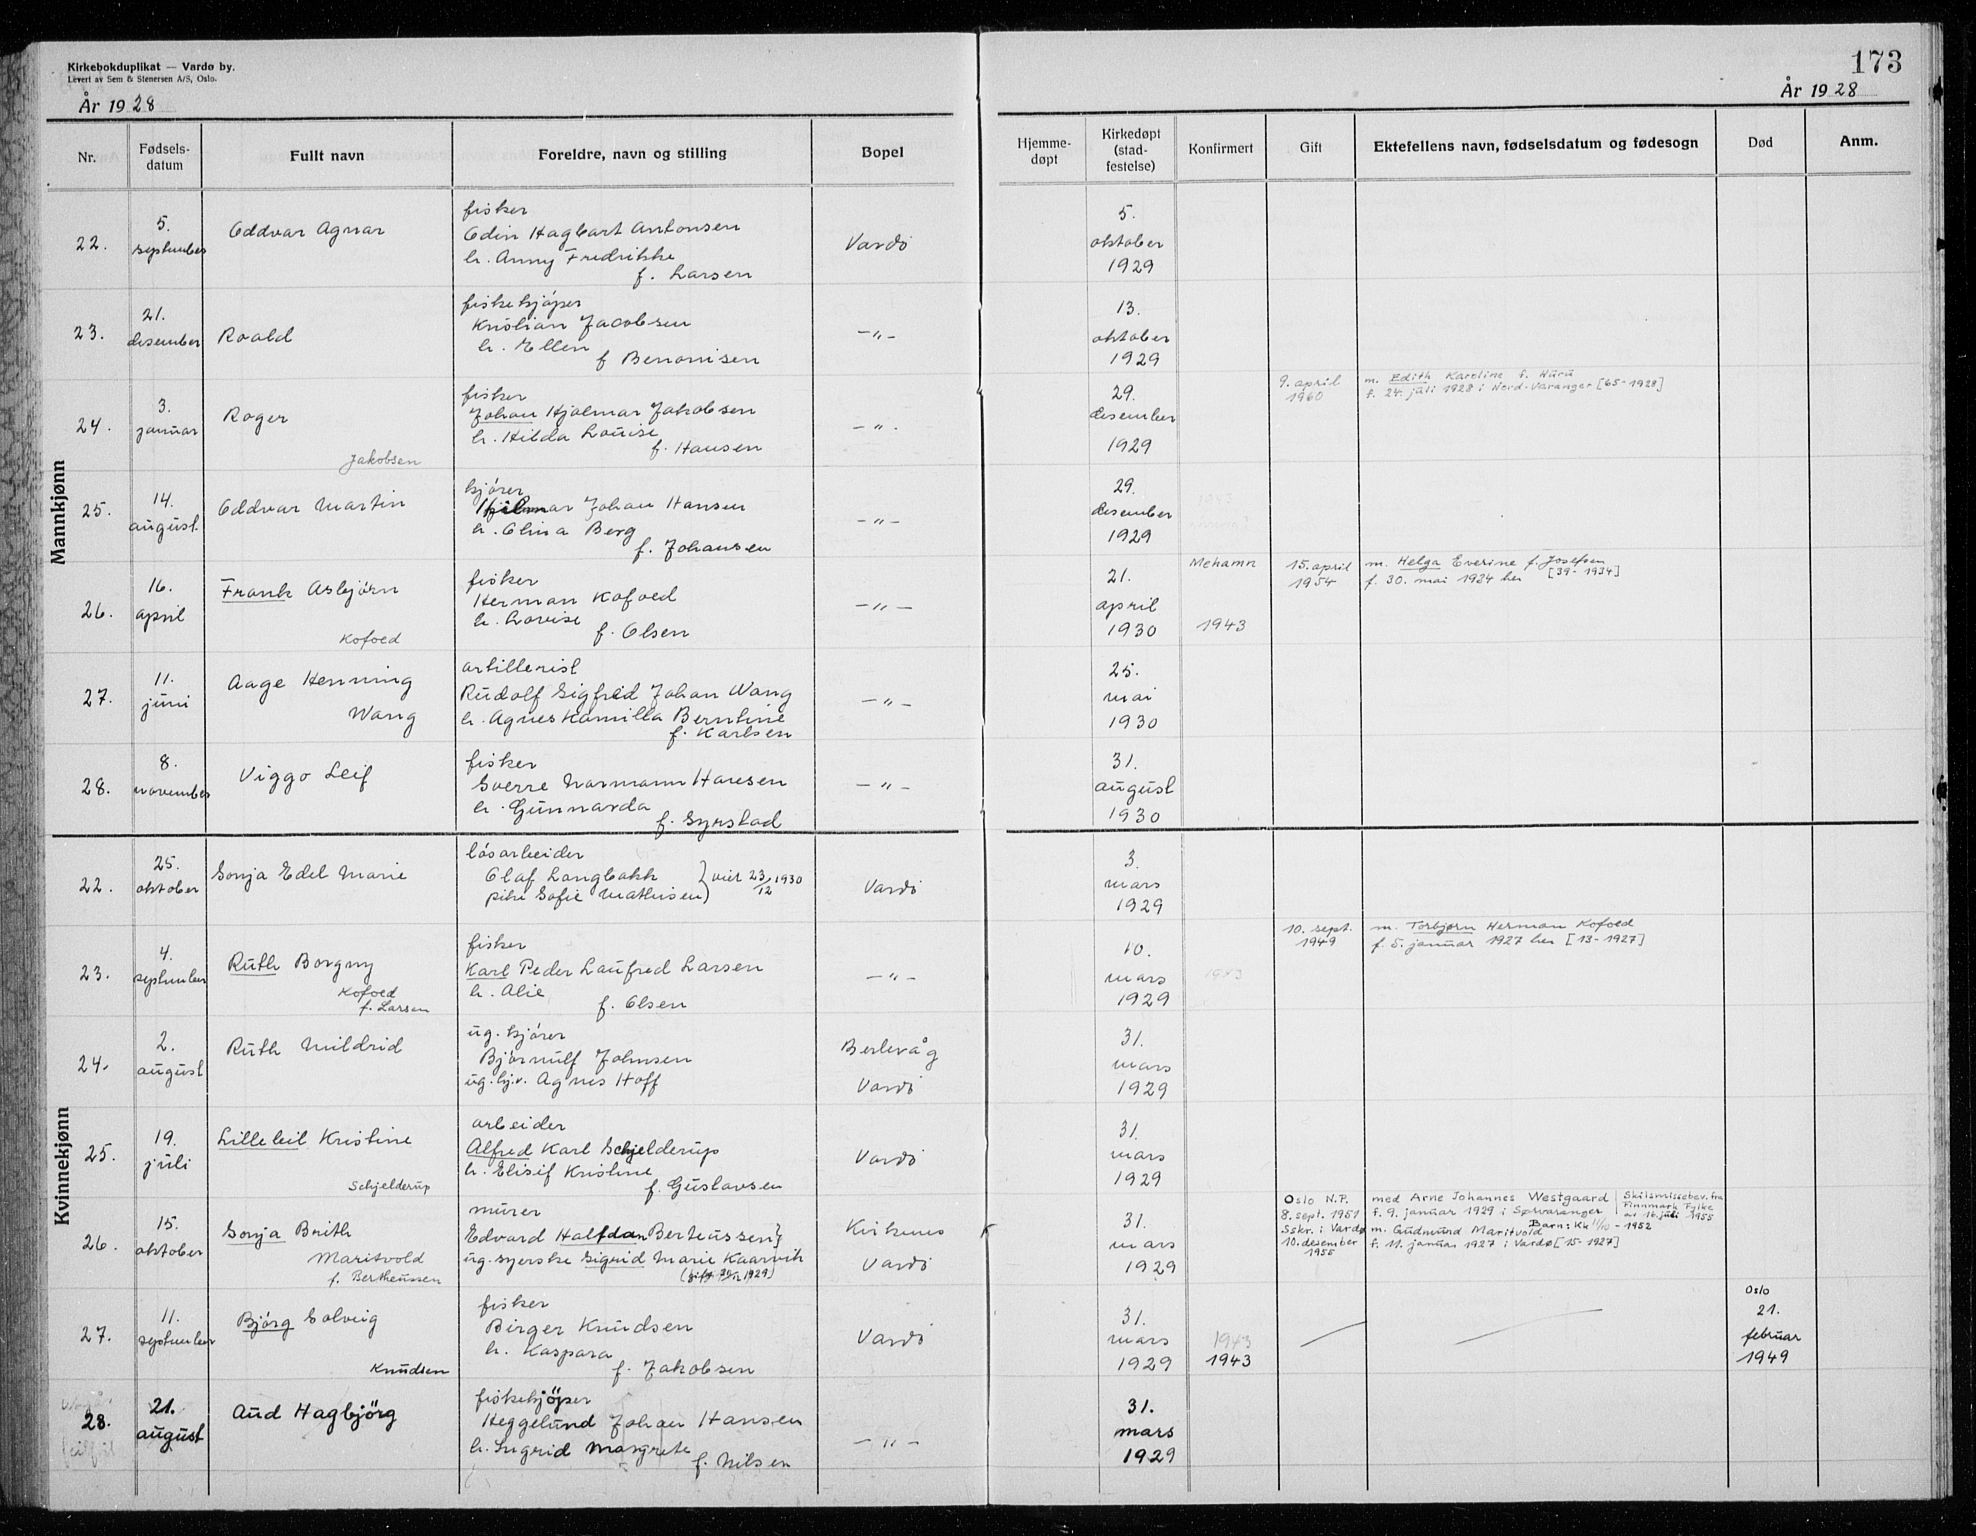 Kirkebokduplikat — Vardø by.
Levert av Sem & Stenersen A/S, Oslo.
År 1928
173
År 1928
Nr. Fødsels-datum Fullt navn Foreldre, navn og stilling Bopel Hjemme-døpt Kirkedøpt (stad-festelse) Konfirmert Gift Ektefellens navn, fødselsdatum og fødesogn Død Anm.
Mannkjønn
22. 5. september Oddvar Agnar
fisker
Odin Hagbart Antonsen
h. Anny Fredrikke
f. Larsen
Vardö
5. oktober 1929
23. 21. desember Roald
fiskekjöper
Kristian Jacobsen
h. Ellen
f Benonisen
—„—
13. oktober 1929
24. 3. januar Roger
Jakobsen
fisker
Johan Hjalmar Jakobsen
h. Hilda Louise
f. Hansen
—„—
29. desember 1929
9. april 1960
m. Edith Karoline f. Huru
f. 24. juli 1928 i Nord-Varanger [65-1928]
25. 14. august. Oddvar Martin
kjörer
Hjalmar Johan Hansen
h. Olina Berg
f. Johansen
—„—
29. desember 1929
1943
26. 16. april Frank Asbjörn
Kofoed
fisker
Herman Kofoed
h. Lovise
f. Olsen
—„—
21. april 1930
Mehamn 1943
15. april 1954
m. Helga Everine f. Josefsen
f. 30. mai 1934 her [39-1934]
27. 11. juni Aage Henning
Wang
artillerist
Rudolf Sigfrid Johan Wang
h. Agnes Kamilla Berntine
f. Karlsen
—„—
25. mai 1930
28. 8. november Viggo Leif
fisker
Sverre Normann Hansen
h. Gunnarda
f. Syrstad
—„—
31. august 1930
Kvinnekjønn
22. 25. oktober Sonja Edel Marie
lösarbeider
Olaf Langbakk
pike Sofie Mathisen) viet 23/12 1930
Vardö
3. mars 1929
23. 4. september Ruth Borgny
Kofoed
f. Larsen
fisker
Karl Peder Laufred Larsen
h. Alie
f. Olsen
—„—
10. mars 1929
1943
10. sept. 1949
m. Torbjørn Herman Kofoed
f. 5. januar 1927 her [13-1927]
24. 2. august Ruth Mildrid
ug. kjörer
Björnulf Johnsen
ug. hj.v. Agnes Hoff
Berlevåg
Vardö
31. mars 1929
25. 19. juli Lilleleil Kristine
Schjelderup
arbeider
Alfred Karl Schjelderup
h. Elisif Kristine
f. Gustavsen
Vardö
31. mars 1929
26. 15. oktober Sonja Brith
Maritvold
f. Bertheussen
murer
Edvard Halfdan Berteussen}
ug. syerske Sigrid Marie Kaarvik
Kirkenes
Vardö
31. mars 1929
Oslo N.P.
8. sept. 1951
Sskr. i Vardø
10. desember 1955
med Arne Johannes Westgaard
f. 9. januar 1929 i Sørvaranger
Barn: Kk 11/10 - 1952
m. Gudmund Maritvold
f. 11. januar 1927 i Vardø [15-1927]
Skilsmissebev. fra
Finnmark Fylke
av 16. juli 1955
27. 11. september Björg Solveig
Knudsen
fisker
Birger Knudsen
h. Kaspara
f. Jakobsen
Vardö
31. mars 1929
1943
1943
Oslo
21. februar 1949
28. 21. august Aud Hagbjörg
fiskekjöper
Heggelund Johan Hansen
h. Ingrid Margrete
f. Nilsen
—„—
31. mars 1929